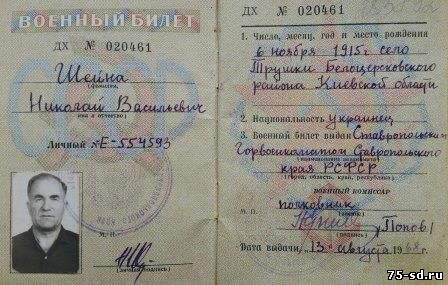 ВОЕННЫЙ БИЛЕТ
ДХ № 020461
Шейна
(фамилия,
Николай Васильевич
имя и отчество)
Личный № Е-554593
М. П.
(личная подпись)
ДХ № 020461
1. Число, месяц, год и место рождения
6 ноября 1915г село
Трушки Белоцерковского
района Киевской области
2. Национальность украинец
3. Военный билет выдан Ставропольским
Горвоенкоматом Ставропольского
края РСФСР
(город, область, край, республика)
ВОЕННЫЙ КОМИССАР
полковник
М. П.
/Попов/
Дата выдачи „13" августа 1968 г.
75-sd.ru